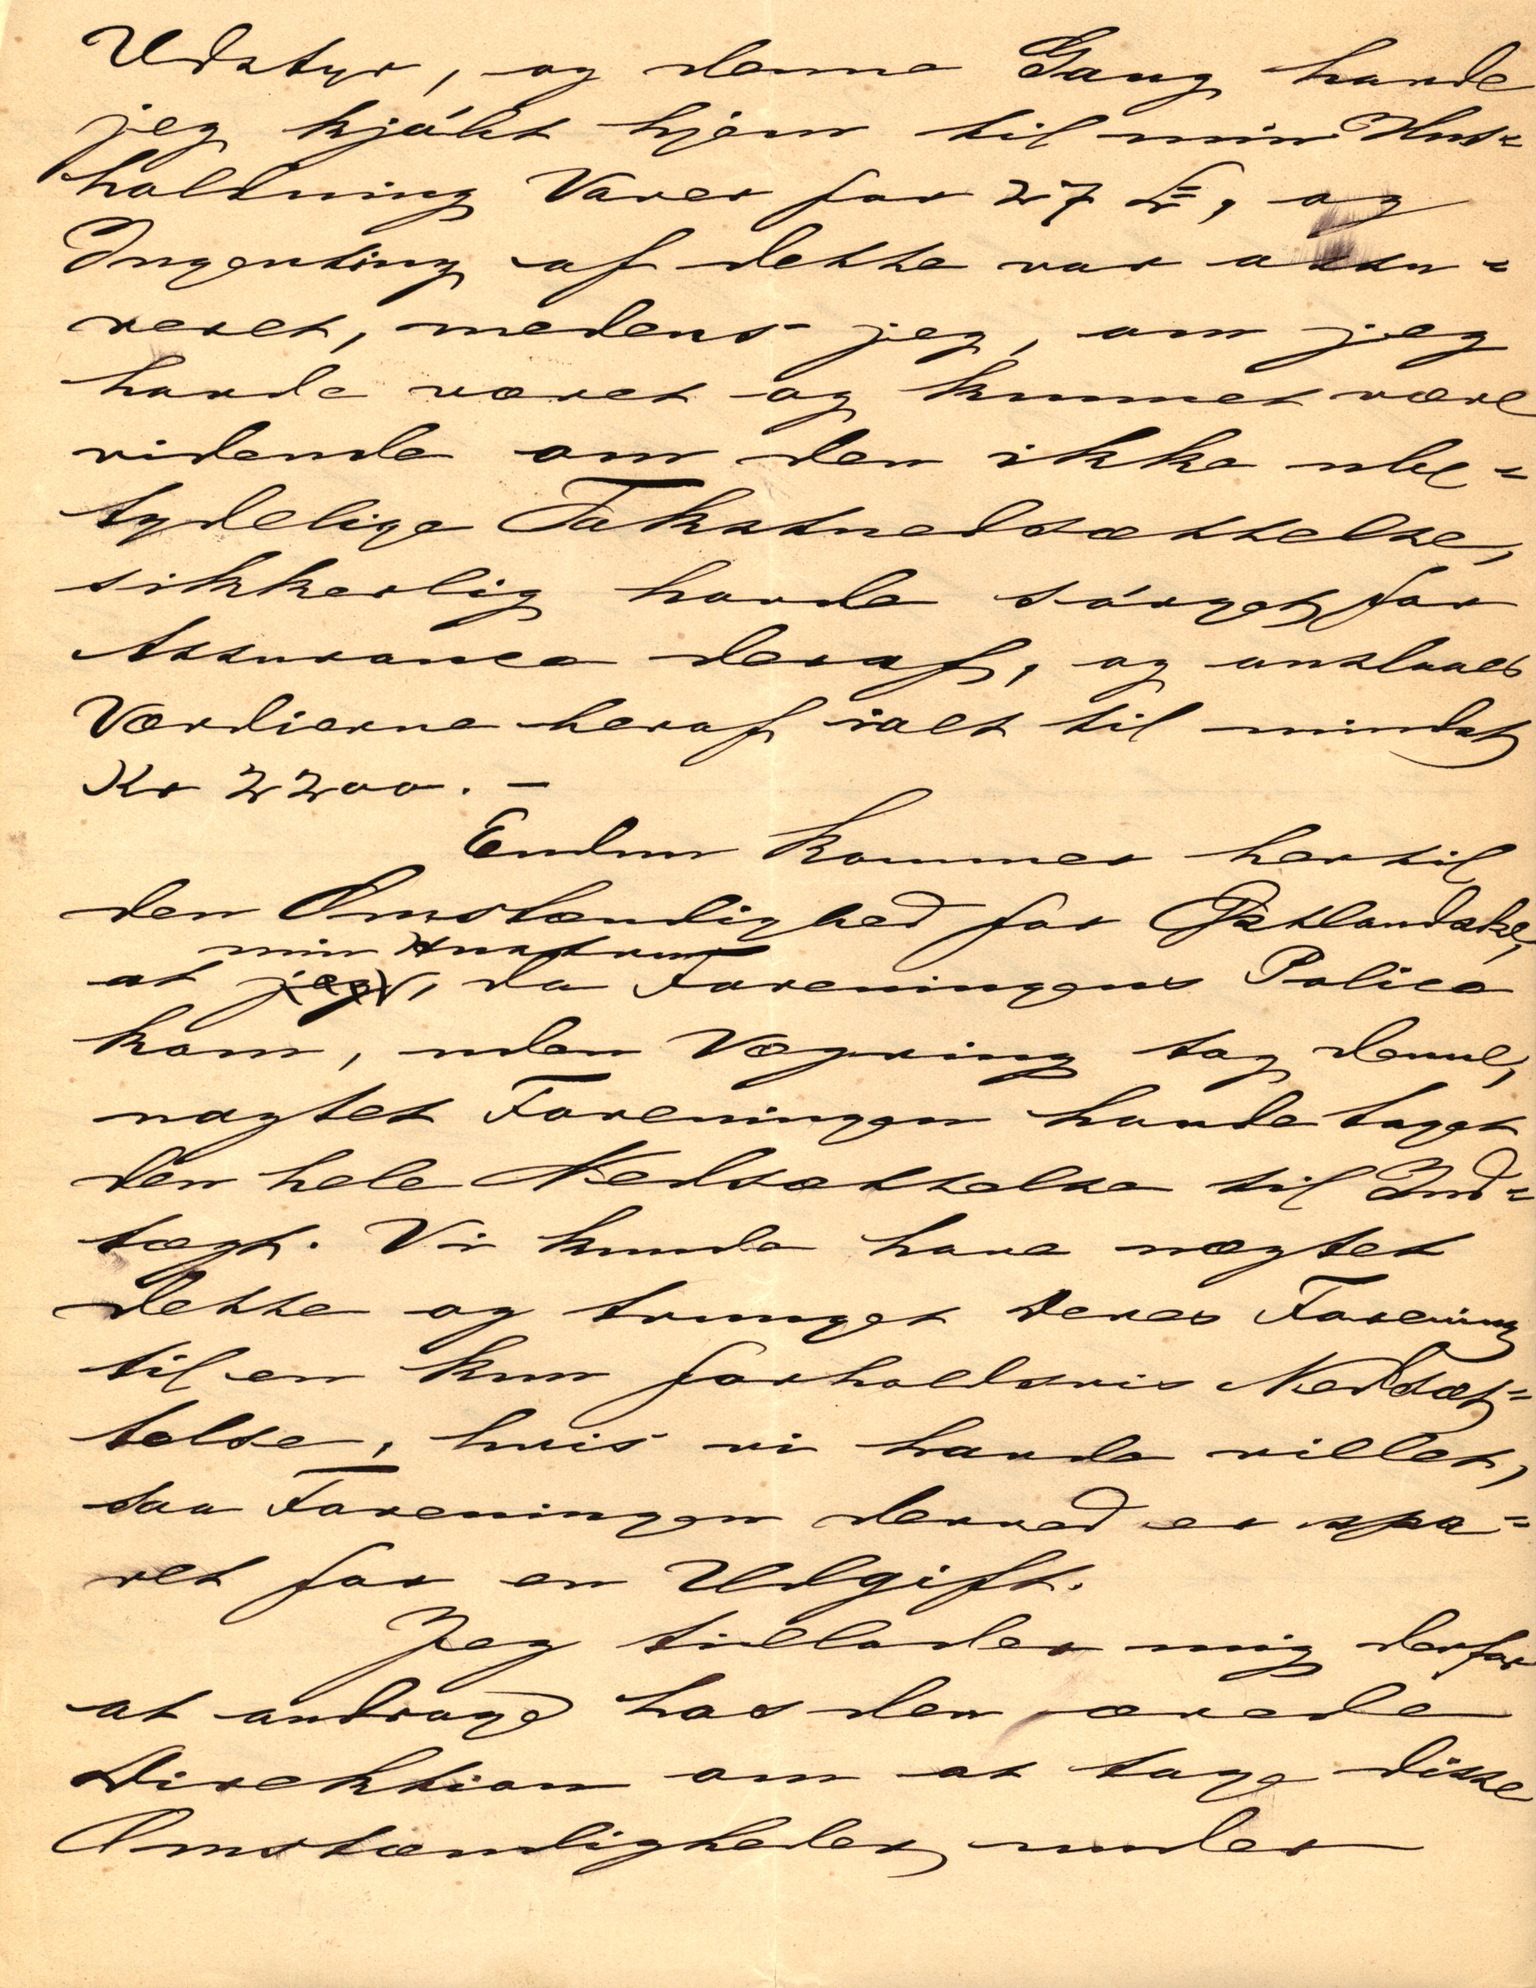 Udstyr, og denne Gang havde
jeg kjøbt hjem til min Hus=
holdning Varer for 27 £, og
Ingenting af dette var assu=
reret, medens jeg, om jeg
havde været og kunnet være
vidende om den ikke ube=
tydelige Takstnedsættelse,
sikkerlig havde sörget for
Assurance deraf, og anslaaes
Værdierne heraf ialt til mindst
Kr 2200. –
Endnu kommer hertil
den Omstændighed for Østlandske,
min Hustru
at jeg, da Foreningens Police
kom, uden Vægring tog denne,
uagtet Foreningen havde taget
den hele Nedsættelse til Ind=
tægt. Vi kunde have nægtet
dette og tvunget deres Forening
til en kun forholdsvis Nedsæt=
telse, hvis vi havde villet,
saa Foreningen derved er spa=
ret for en Udgift.
Jeg tillader mig derfor
at andrage hos den ærede
Direktion om at tage disse
Omstændigheder under